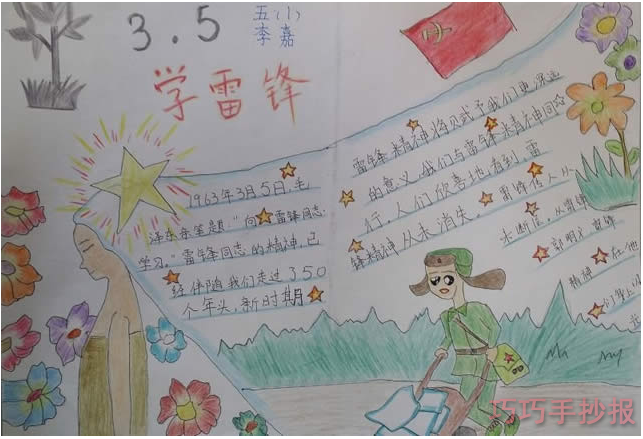 3.5
五(小)
李嘉
学雷锋
1963年3月5日,毛
泽东亲笔题:“向雷锋同志
学习。”雷锋同志的精神,已
经伴随我们走过350
个年头,新时期
雷锋精神将贝武予我们更深远
的意义,我们与雷锋精神同
行。人们欣喜地看到,雷
锋精神从未消失。
雷锋传人从
未断层。从雷锋
郭明义
精神
巧巧手抄报